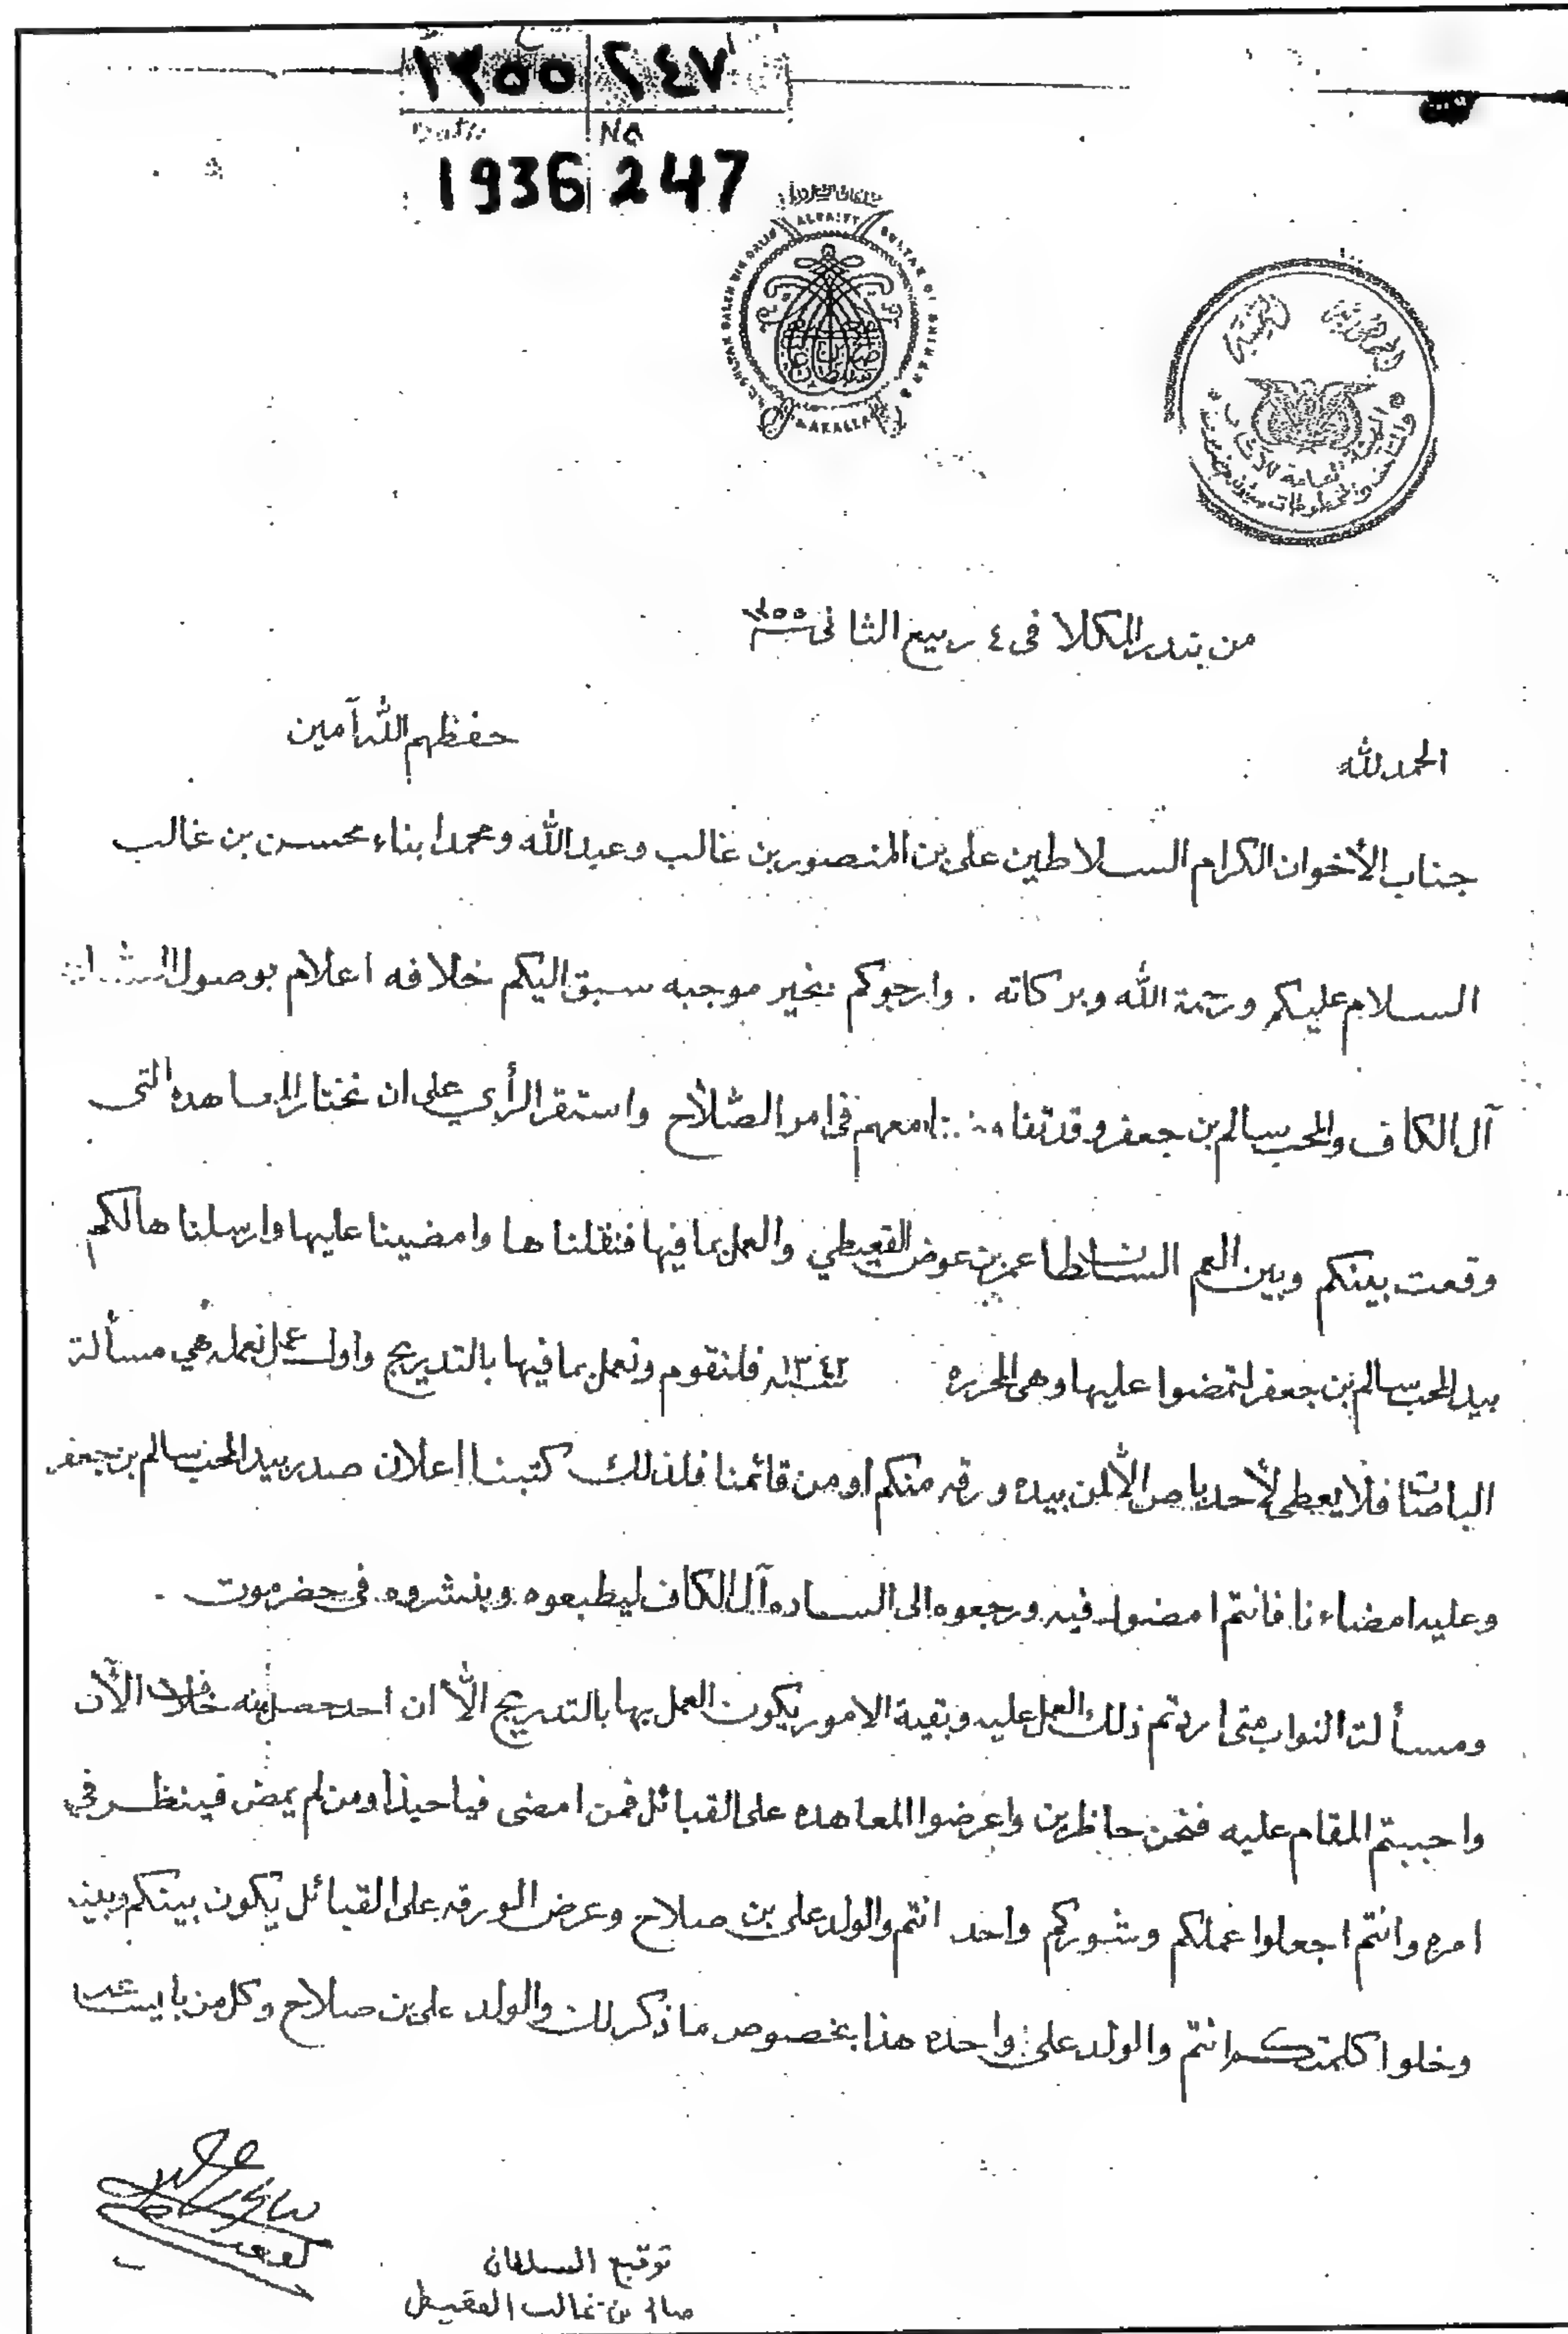 ١٣٥٥ ٢٤٧
Date No
1936 247
SULTAN SALEH BIN GALIB ALKAITY SULTAN OF SHIHR &
MAKALLA
الجمهورية اليمنية
الهيئة العامة للآثار
والمتاحف والمخطوطات سيئون حضرموت
من بندر المكلا فى ٤ ربيع الثانى سنة ١٣٥٥
الحمدلله
حفظهم الله آمين
جناب الأخوان الكرام السلاطين على بن المنصور بن غالب وعبدالله ومحمد ابناء محسن بن غالب
السلام عليكم ورحمة الله وبركاته . وارجوكم بخير موجبه سبق اليكم خلافه اعلام بوصول
آل الكاف والمحب سالم بن جعفر وقد معهم فى امر الصّلاح واستقر الرأي على ان نختار المعاهده التى
وقعت بينكم وبين العم السلطان عمر بن عوض القعيطي والعمل بما فيها فنقلناها وامضينا عليها وارسلناها لكم
بيد المحب سالم بن جعفر لتمضوا عليها وهى المحرره سنه ١٣٤٢ فلنقوم ونعمل بما فيها بالتدريج واول عمل نعمله هي مسألة
الباصات فلا يعطى لأحد باص الّا لمن بيده ورقه منكم او من قائمنا فلذلك كتبنا اعلان صدر بيد المحب سالم بن جعفر
وعليه امضاءنا فانتم امضوا فيه ورجعوه الى الساده آل الكاف ليطبعوه وينشروه فى حضرموت .
ومسألة النواب متى اردتم ذلك العمل عليه وبقية الامور يكون العمل بها بالتدريج الّا ان احد حصل منه خلاف الآن
واحببتم المقام عليه فنحن حاظرين واعرضوا المعاهده على القبائل فمن امضى فيا حبذا ومن لم يمض فينظر في
امره وانتم اجعلوا عملكم وشوركم واحد انتم والولد على بن صلاح وعرض الورقه على القبائل يكون بينكم وبينه
وخلوا كلمتكم انتم والولد على واحده هذا بخصوص ما ذكر لك والولد على بن صلاح وكل من با يساعد
توقيع السلطان
صالح بن غالب القعيطي